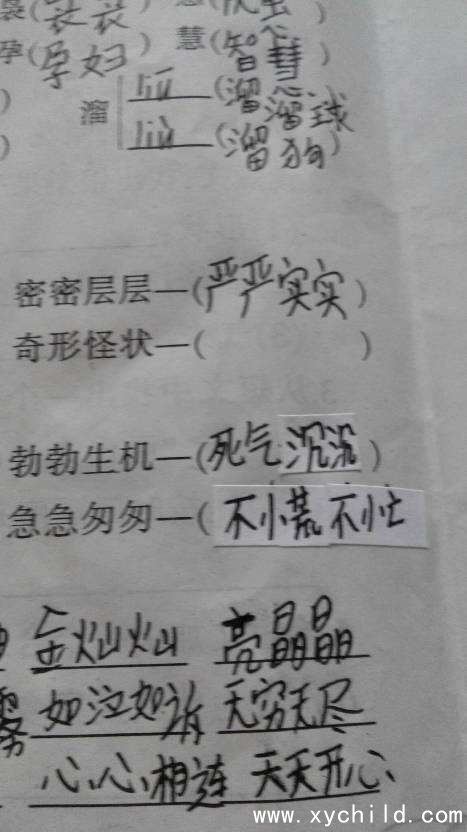 袅(袅袅)
孕(孕妇) 慧(智慧)
溜 liū(溜溜球)
liù(溜狗)
密密层层—(严严实实)
奇形怪状—( )
勃勃生机—(死气沉沉)
急急匆匆—(不慌不忙)
金灿灿 亮晶晶
如泣如诉 无穷无尽
心心相连 天天开心
www.xychild.com